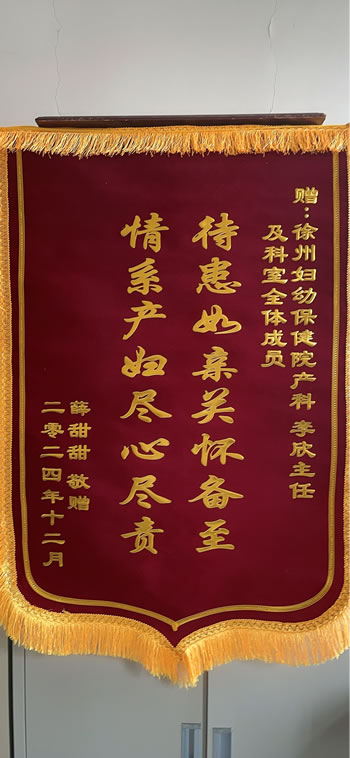 赠：徐州妇幼保健院产科 李欣主任
及科室全体成员
待患如亲关怀备至
情系产妇尽心尽责
薛甜甜 敬赠
二零二四年十二月